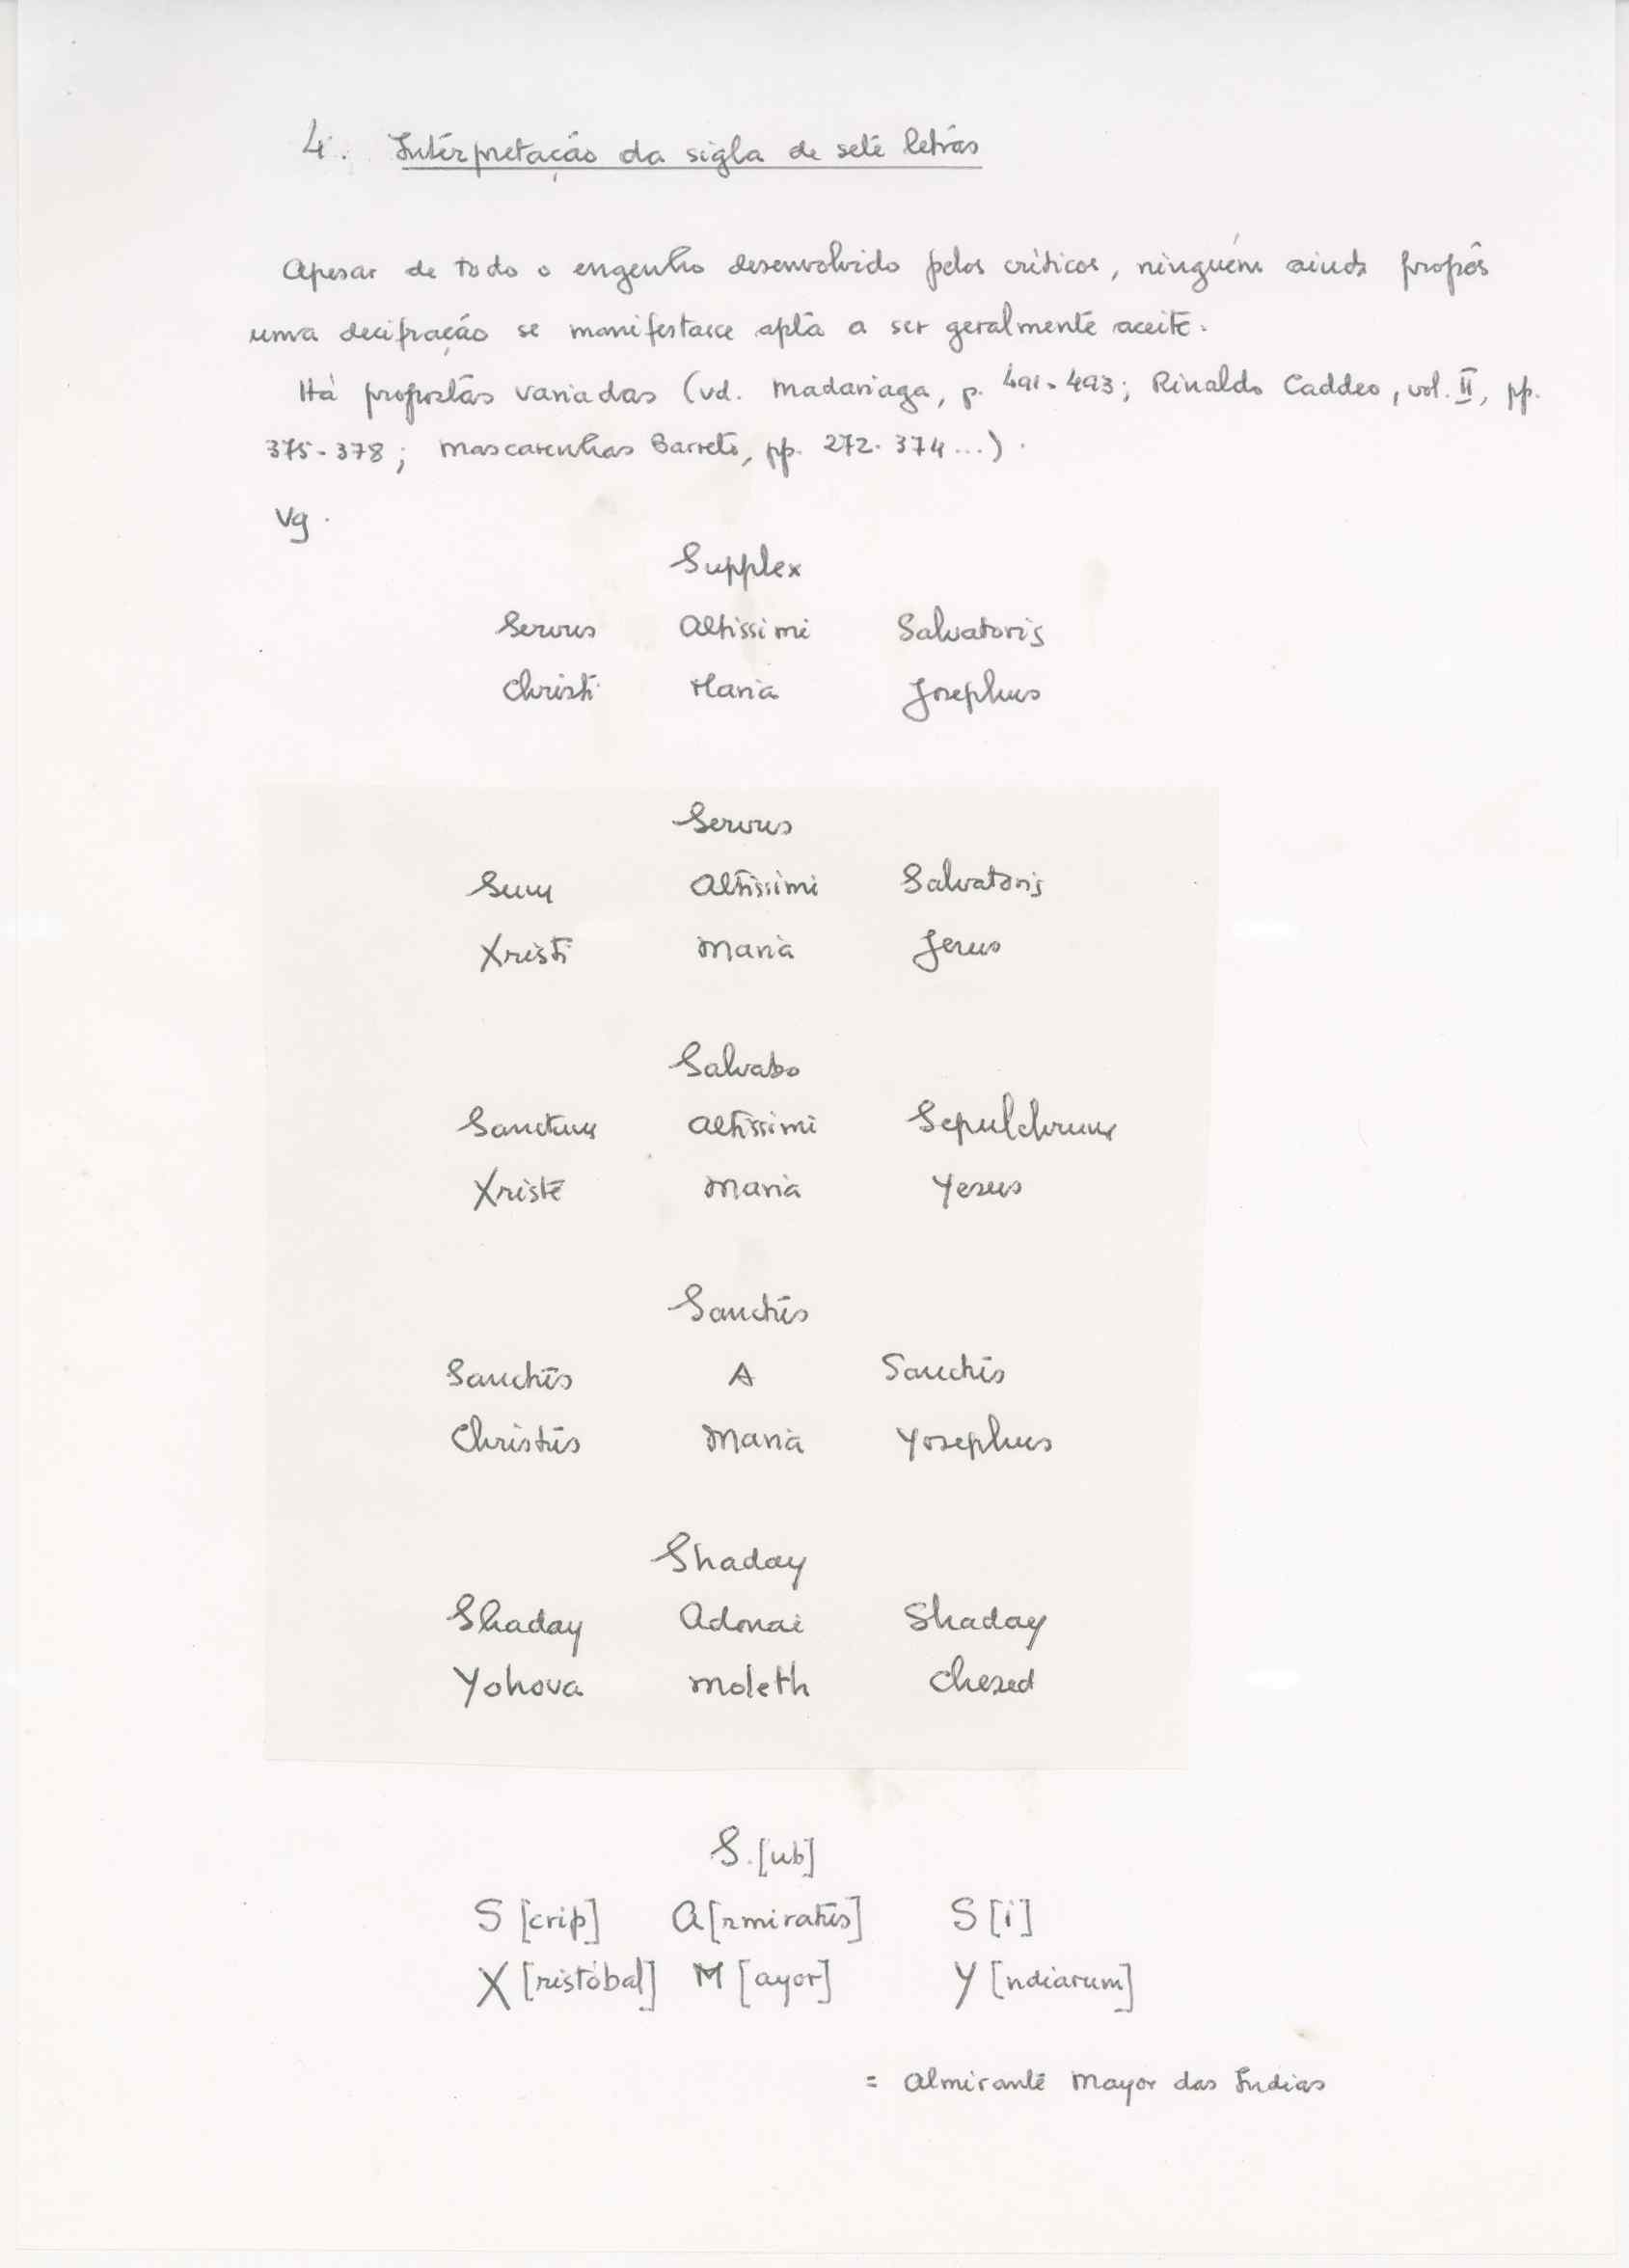 4. Interpretação da sigla de sete letras
Apesar de todo o engenho desenvolvido pelos críticos, ninguém ainda propôs
uma decifração se manifestasse apta a ser geralmente aceite.
Há propostas variadas (vd. Madariaga, p. 491-493; Rinaldo Caddeo, vol. II, pp.
375-378; Mascarenhas Barreto, pp. 272-374...).
Vg.
Supplex
Servus Altissimi Salvatoris
Christi Maria Josephus
Servus
Sum Altissimi Salvatoris
Xristi Maria Jesus
Salvabo
Sanctum Altissimi Sepulchrum
Xriste Maria Yesus
Sanctus
Sanctus A Sanctus
Christus Maria Yosephus
Shaday
Shaday Adonai Shaday
Yohova Moleth Chesed
S.[ub]
S [crip] A[rmiratus] S [i]
X [ristóbal] M [ayor] Y [ndiarum]
= Almirante Mayor das Indias